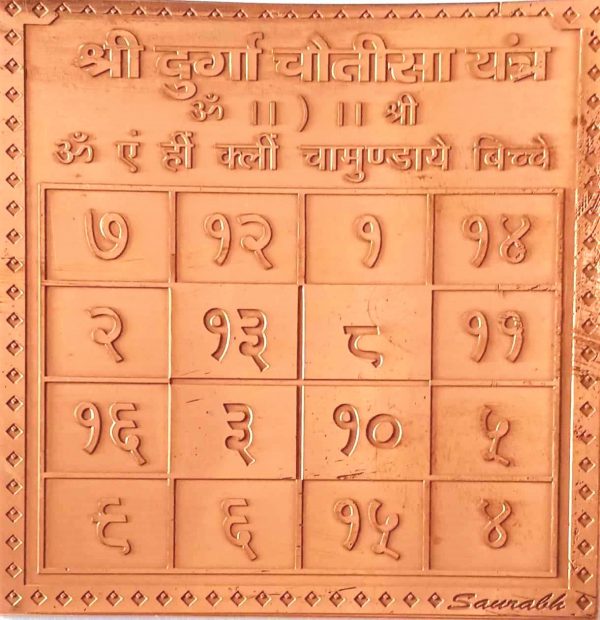 श्री दुर्गा चौतीसा यंत्र
ॐ ।। ) ।। श्री
ॐ एं हीं क्लीं चामुण्डाये विच्चे
७ १२ १ १४
२ १३ ८ ११
१६ ३ १० ५
९ ६ १५ ४
Saurabh